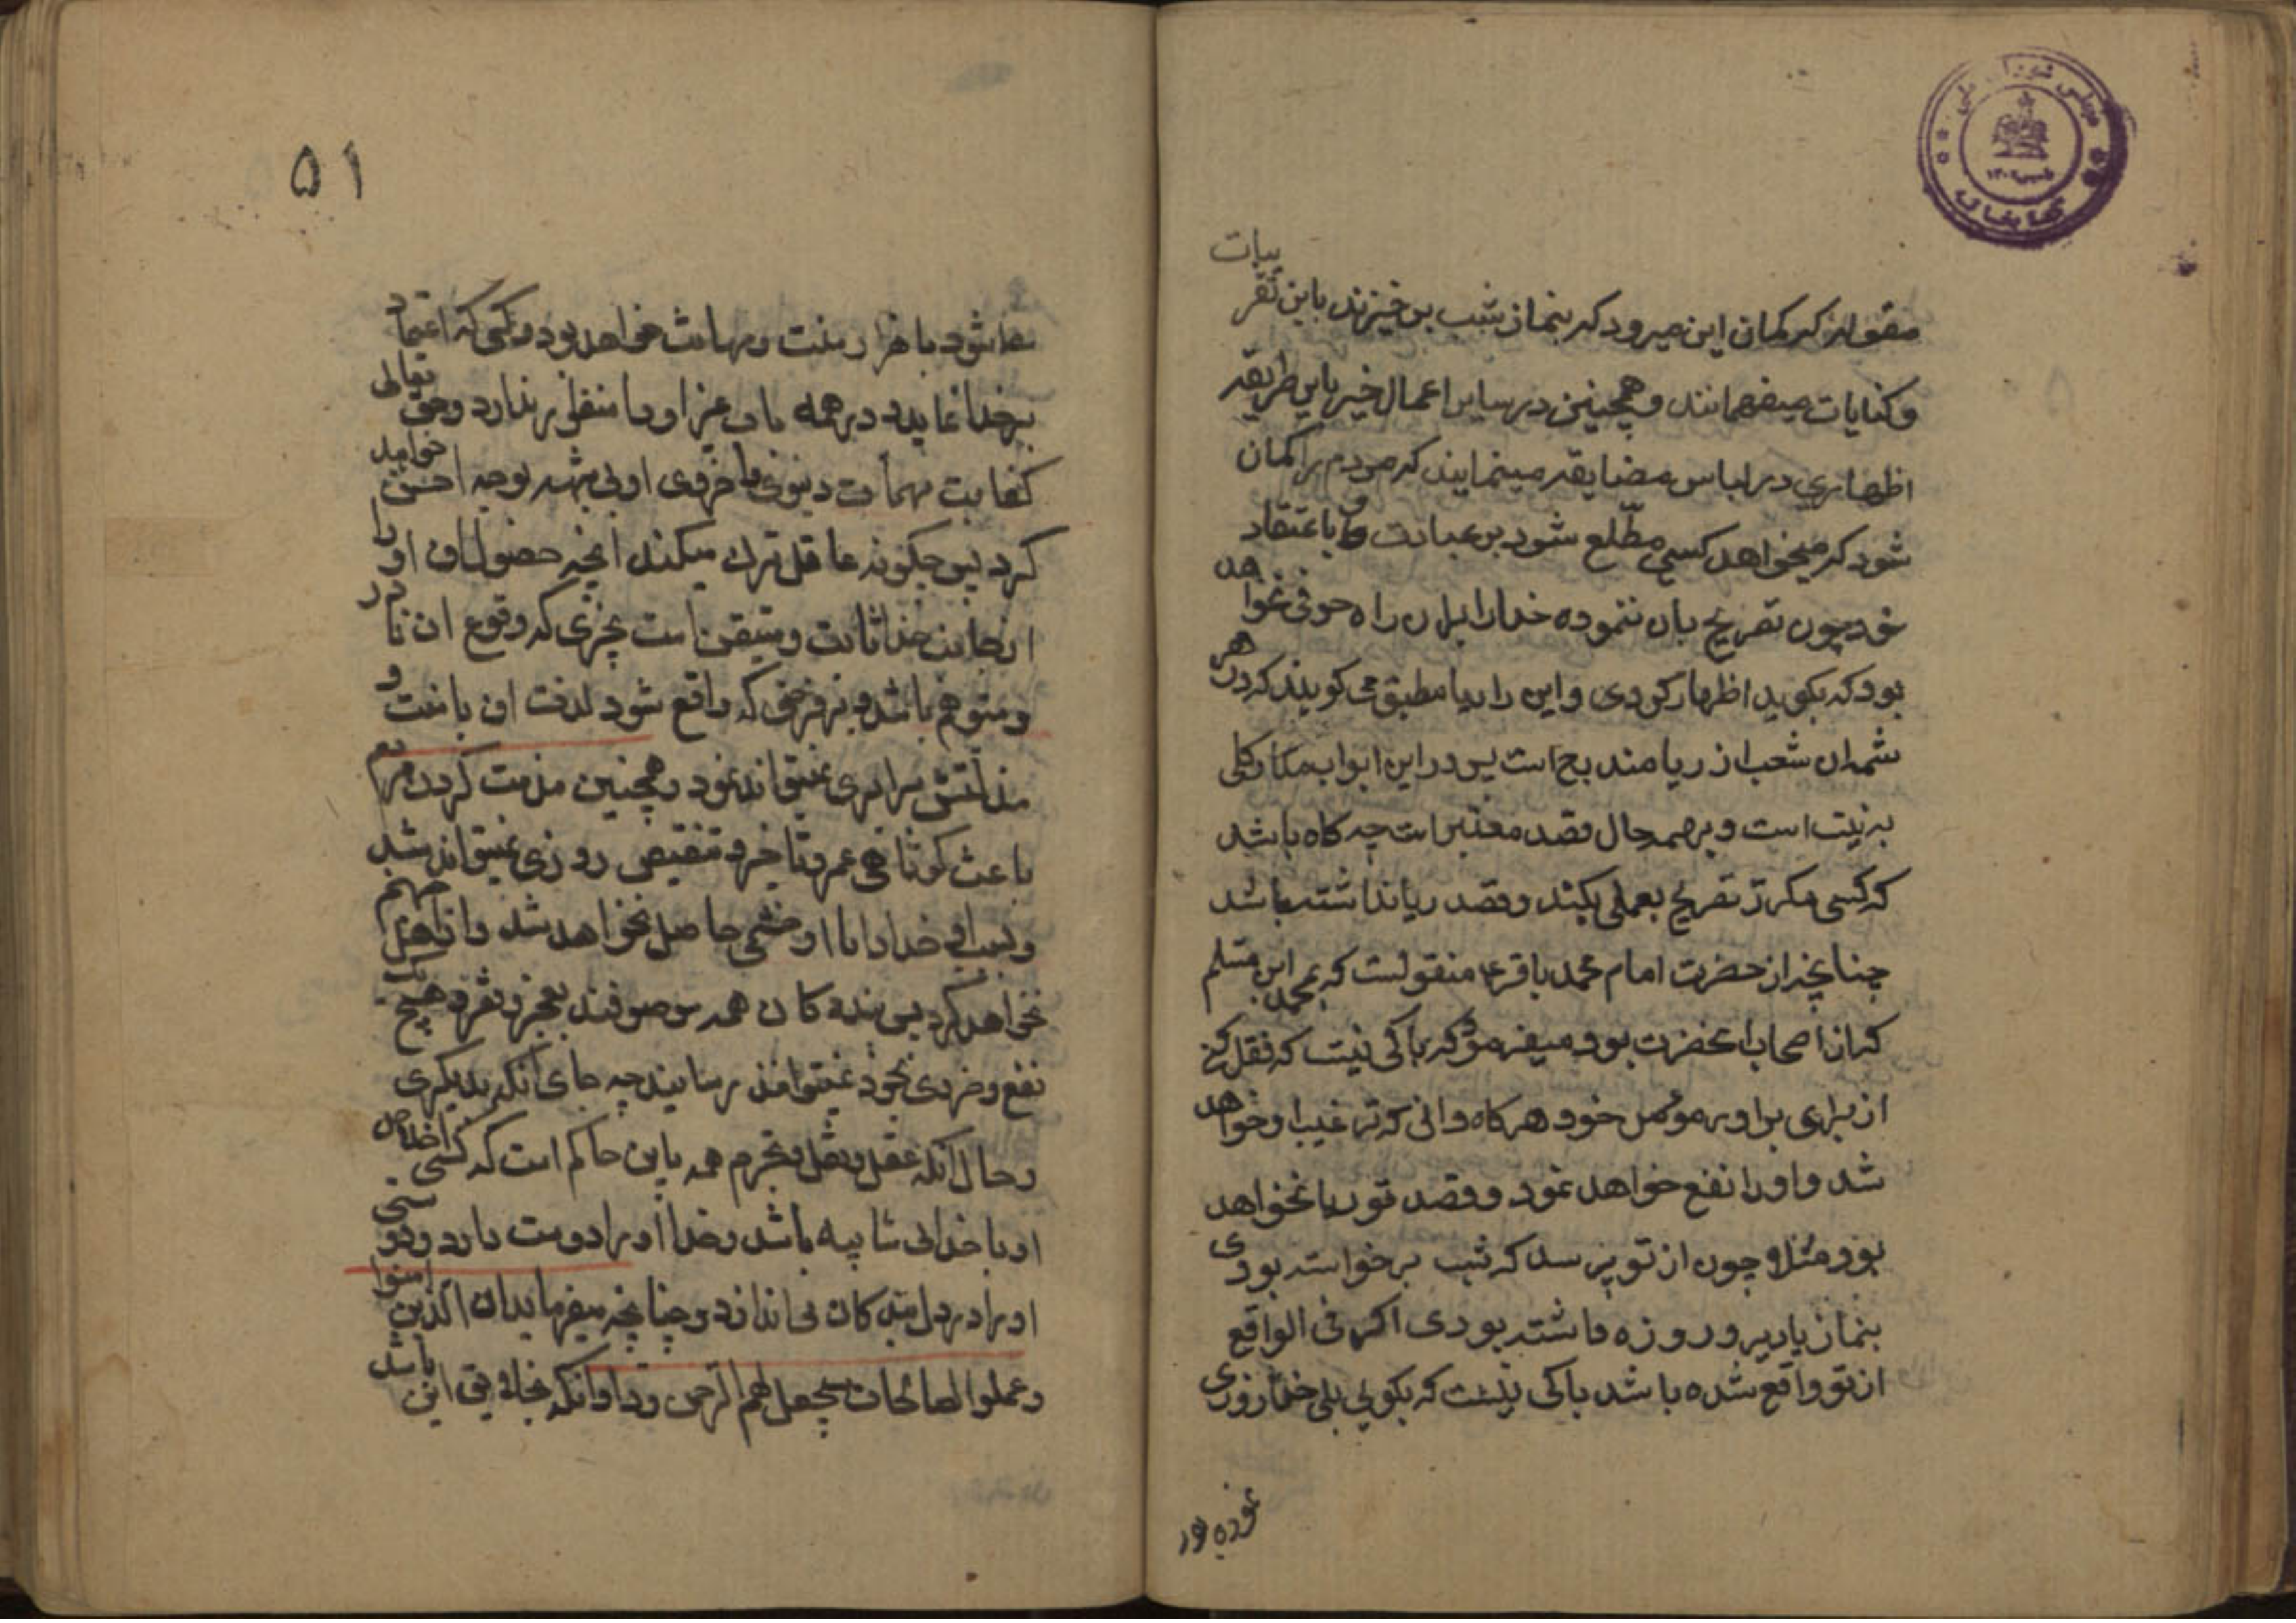 مقوله‌اند که کمان این میرود که بنماز شب بر خیزند باین تقر
یبات
و کنایات میفهمانند و همچنین در سایر اعمال خیر باین طریقه
اظهاری در لباس مضایقه مینمایند که مردم را کمان
شود که نمیخواهد کسی مطّلع شود بر عبادت وی و باعتقاد
خود چون تصریح بان ننموده خدا را ابدان راه حرفی نخواهد
بود که بکوید اظهار کردی و این را ریا مطبق می کویند که در هر
شمه‌ان شعب از ریا مندرج است پس در این ابواب مدار کلی
به نیت است و بر همه حال قصد معتبر است چه کاه باشد
که کسی مکرر تصریح بعملی بکند و قصد ریا نداشته باشد
چنانچه از حضرت امام محمد باقر ع منقولست که بمحمد ابن مسلم
که از اصحاب آنحضرت بود میفرمود که باکی نیست که نقل کنی
از برای برادر مومن خود هر کاه دانی که ترغیب او خواهد
شد و او را نفع خواهد نمود و قصد تو ریا نخواهد
بود مثلا چون از تو پرسد که شب برخواسته بودی
بنماز یا دیروز روزه داشته بودی اکر فی الواقع
از تو واقع شده باشد باکی نیست که بکوئی بلی خدا روزی
نموده بود
۵۱
شود با هزار منت و مهانت خواهد بود و کسی که اعتماد
بخدا نماید در همه باب عیز او را منظور ندارد و حق تعالی
کفایت مهمات دنیوی و اخروی او بی شبهه بوجه احسن خواهد
کرد پس چکونه عاقل ترک میکند آنچه حصول ان او را
از جانب خدا ثابت و متیقن است بچیزی که وقوع ان نادر
و متوهم باشد و بر فرضی که واقع شود لذت ان با منت و
مذلتش برابری نمیتواند نمود و همچنین مذمت کردن مردم
باعث کوتاهی عمر و تاخیر و تنقیص روزی نمیتواند شد
و بسبب او خدا را با او خشمی حاصل نخواهد شد و از اهل جهنم
نخواهد کرد پس بنده کان همه موصوفند بعجز و فقر و هیچ یک
نفع و ضرری بخود نمیتوانند رسانید چه جای آنکه بدیکری
و حال آنکه عقل و نقل و تجربه همه باین حاکم است که کسی اخلاص
او با خدا بی شایبه باشد و خدا او را دوست دارد و دوستی
او را در دل بنده کان می اندازد و چنانچه میفرماید ان الذین امنوا
و عملوا الصالحات سیجعل لهم الرحمن ودا و انکه بجای این باشد